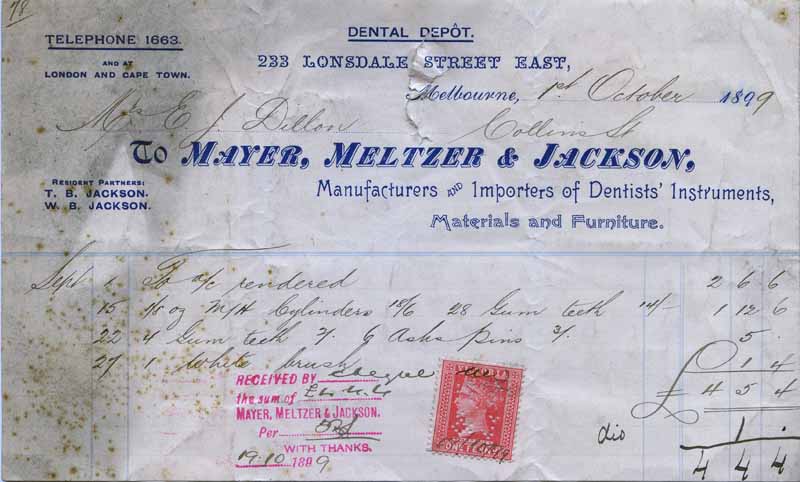 78
DENTAL DEPÔT.
TELEPHONE 1663.
AND AT
LONDON AND CAPE TOWN.
233 LONSDALE STREET EAST,
Melbourne, 1st October 1899
Mr E J Dillon Collins St
To MAYER, MELTZER & JACKSON,
RESIDENT PARTNERS:
T. B. JACKSON.
W. B. JACKSON.
Manufacturers AND Importers of Dentists' Instruments,
Materials and Furniture.
Sept 1 To a/c rendered 2 6 6
15 1/8 oz M/H Cylinders 18/6 28 Gum teeth 14/- 1 12 6
22 4 Gum teeth 2/. 6 Ashs pins 3/. 5 .
27 1 White brush 1 4
£ 4 5 4
RECEIVED BY
the sum of £4.4.4
MAYER, MELTZER & JACKSON.
Per
WITH THANKS.
19.10 1899
VICTORIA
ONE PENNY
dis 1 .
4 4 4